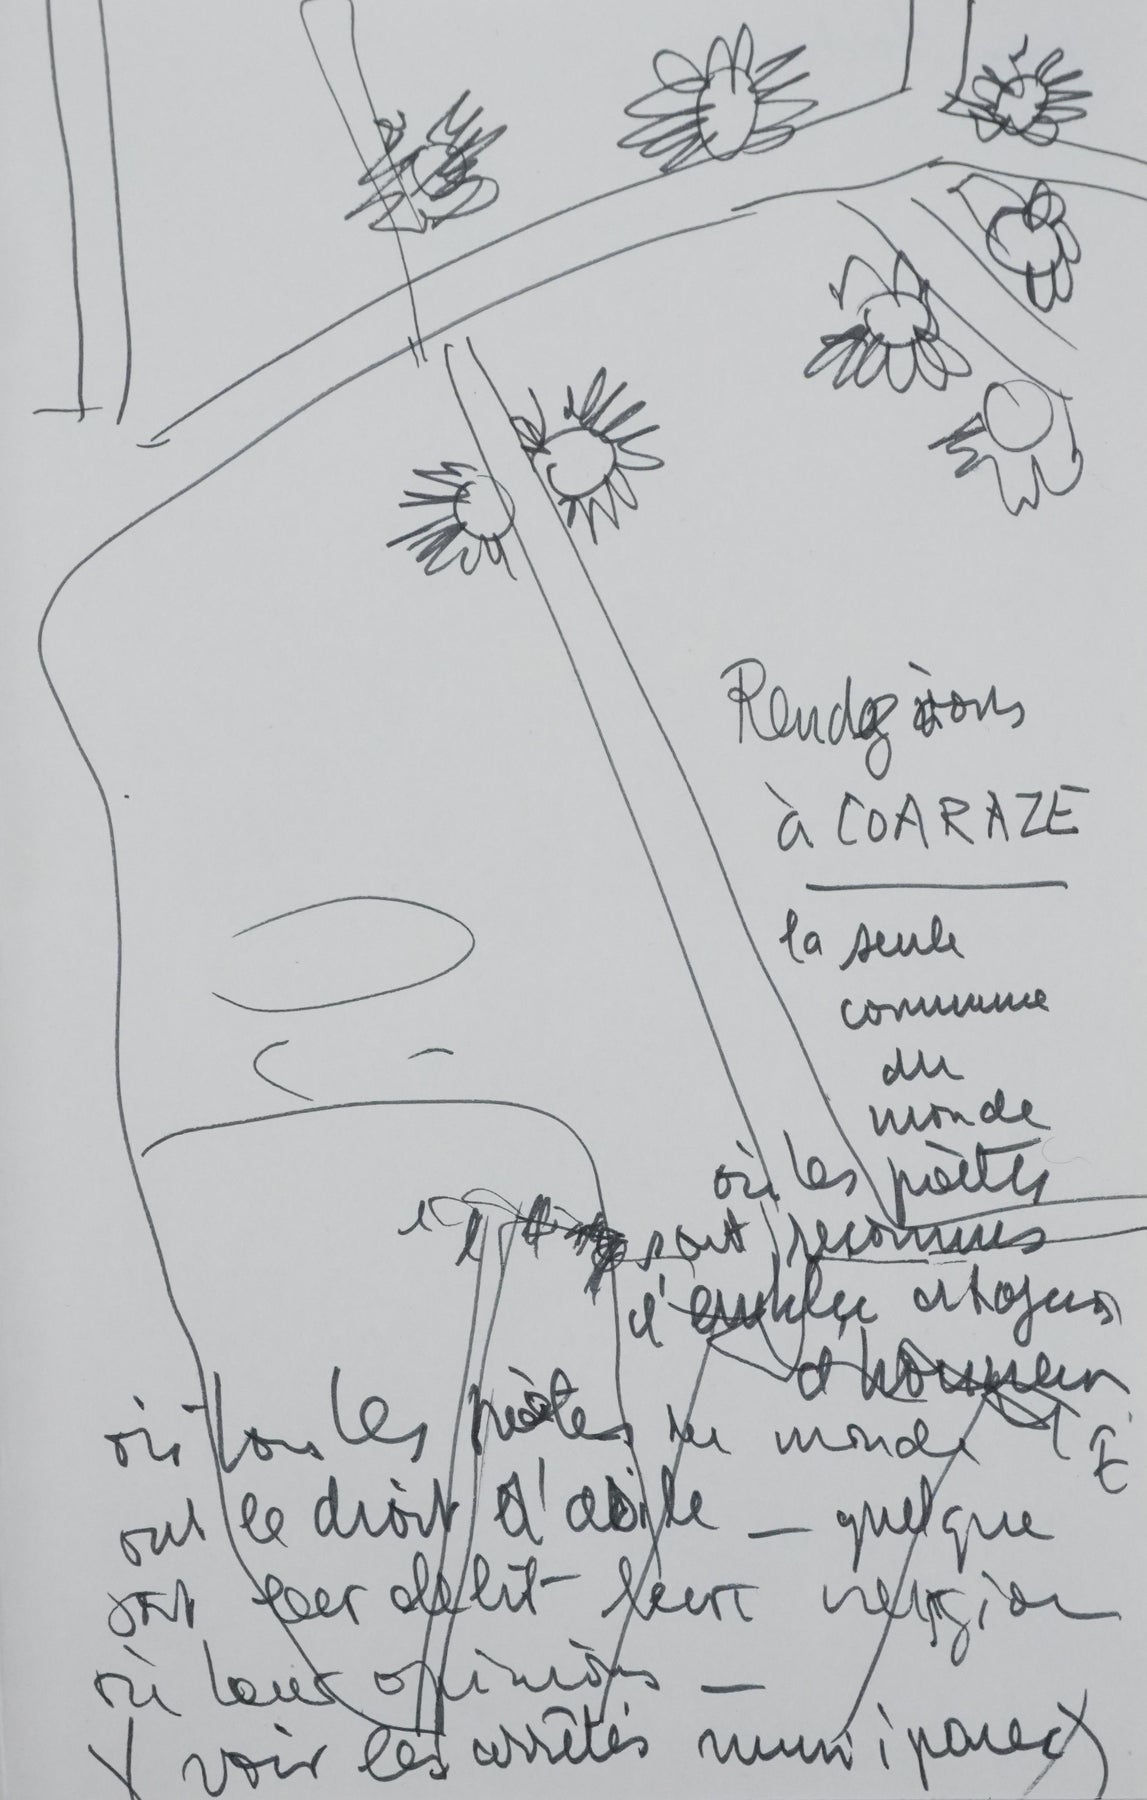 Rendez vous
à COARAZE
la seule
commune
du
monde
où les poètes
sont reconnus
d'emblée citoyens
d'honneur
où tous les poètes du monde
ont le droit d'asile — quelque
soit leur délit leur religion
où leurs opinions —
( voir les arrêtés municipaux )